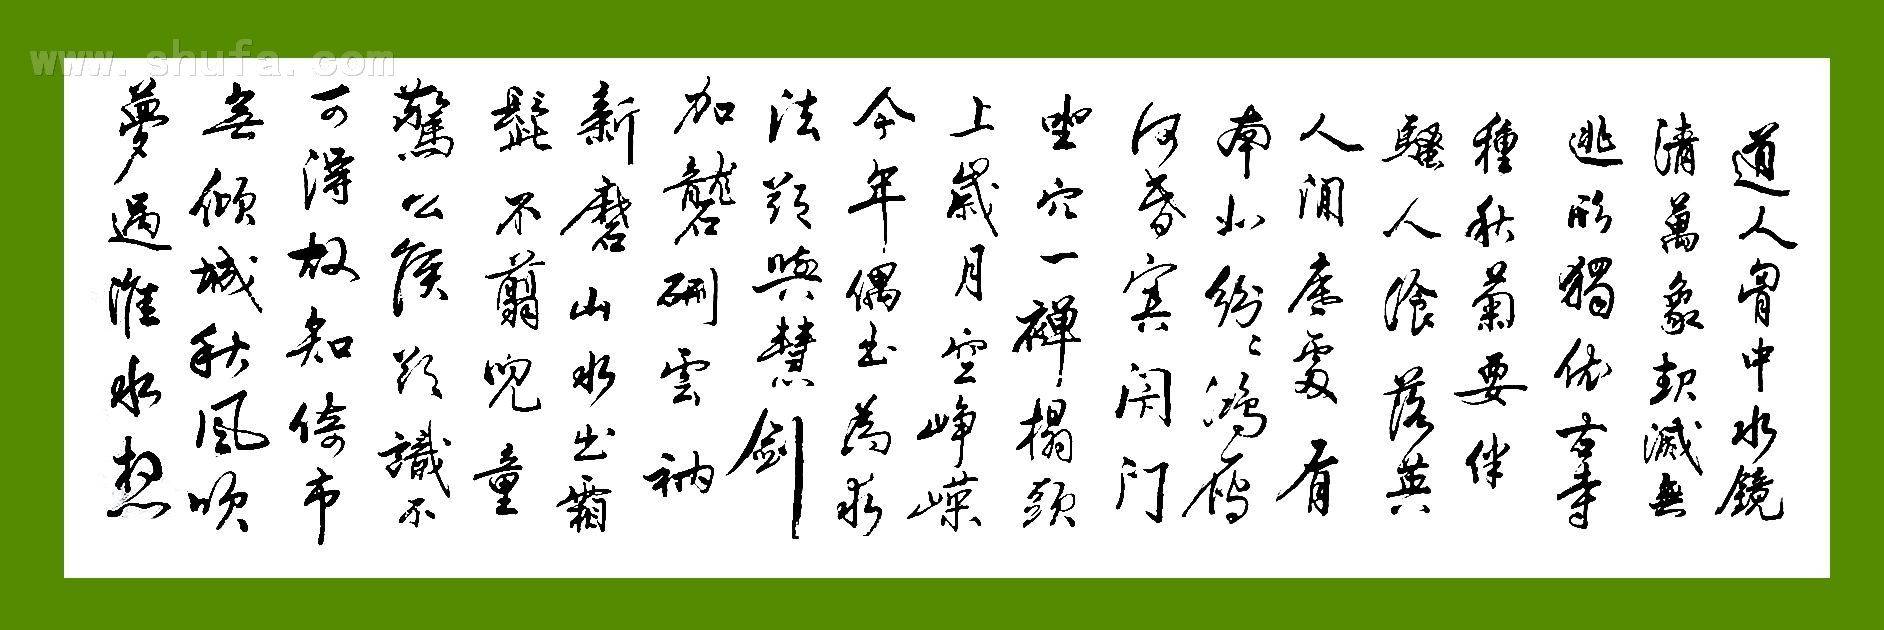 www.shufa.com
道人胷中水鏡
清萬象起滅無
逃形獨依古寺
種秋菊要伴
騷人飡落英
人間底處有
南北紛紛鴻雁
何曾冥閉門
坐穴一禪榻頭
上歲月空崢嶸
今年偶出為求
法欲與慧劍
加礱硎雲衲
新磨山水出霜
髭不翦兒童
驚公侯欲識不
可得故知倚市
無傾城秋風吹
夢過淮水想